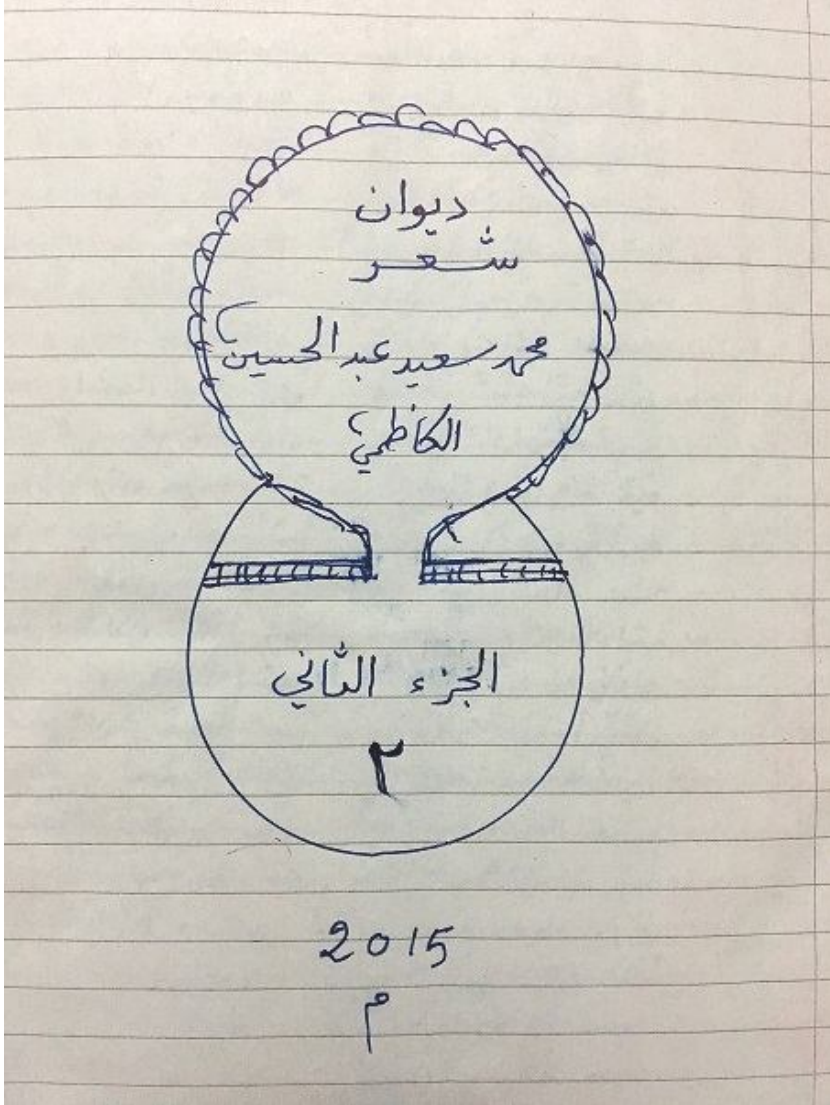 ديوان
شعر
محمد سعيد عبد الحسين
الكاظمي
الجزء الثاني
٢
2015
م